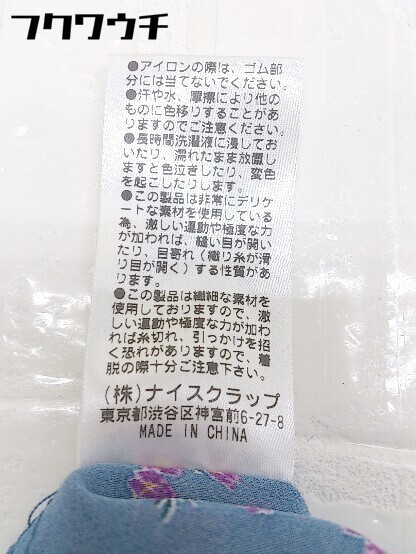 フクワウチ
●アイロンの際は、ゴム部
分には当てないでください。
●汗や水、摩擦により他の
ものに色移りすることがあ
りますのでご注意ください。
●長時間洗濯液に浸してお
いたり、濡れたまま放置し
ますと色泣きしたり、変色
を起こしたりします。
●この製品は非常にデリケ
ートな素材を使用している
為、激しい運動や極度な力
が加われば、縫い目が開い
たり、目寄れ(織り糸が滑
り目が開く)する性質があ
ります。
●この製品は繊細な素材を
使用しておりますので、激
しい運動や極度な力が加わ
れば糸切れ、引っかけを招
く恐れがありますので、着
脱の際十分ご注意下さい。
(株)ナイスクラップ
東京都渋谷区神宮前6-27-8
MADE IN CHINA